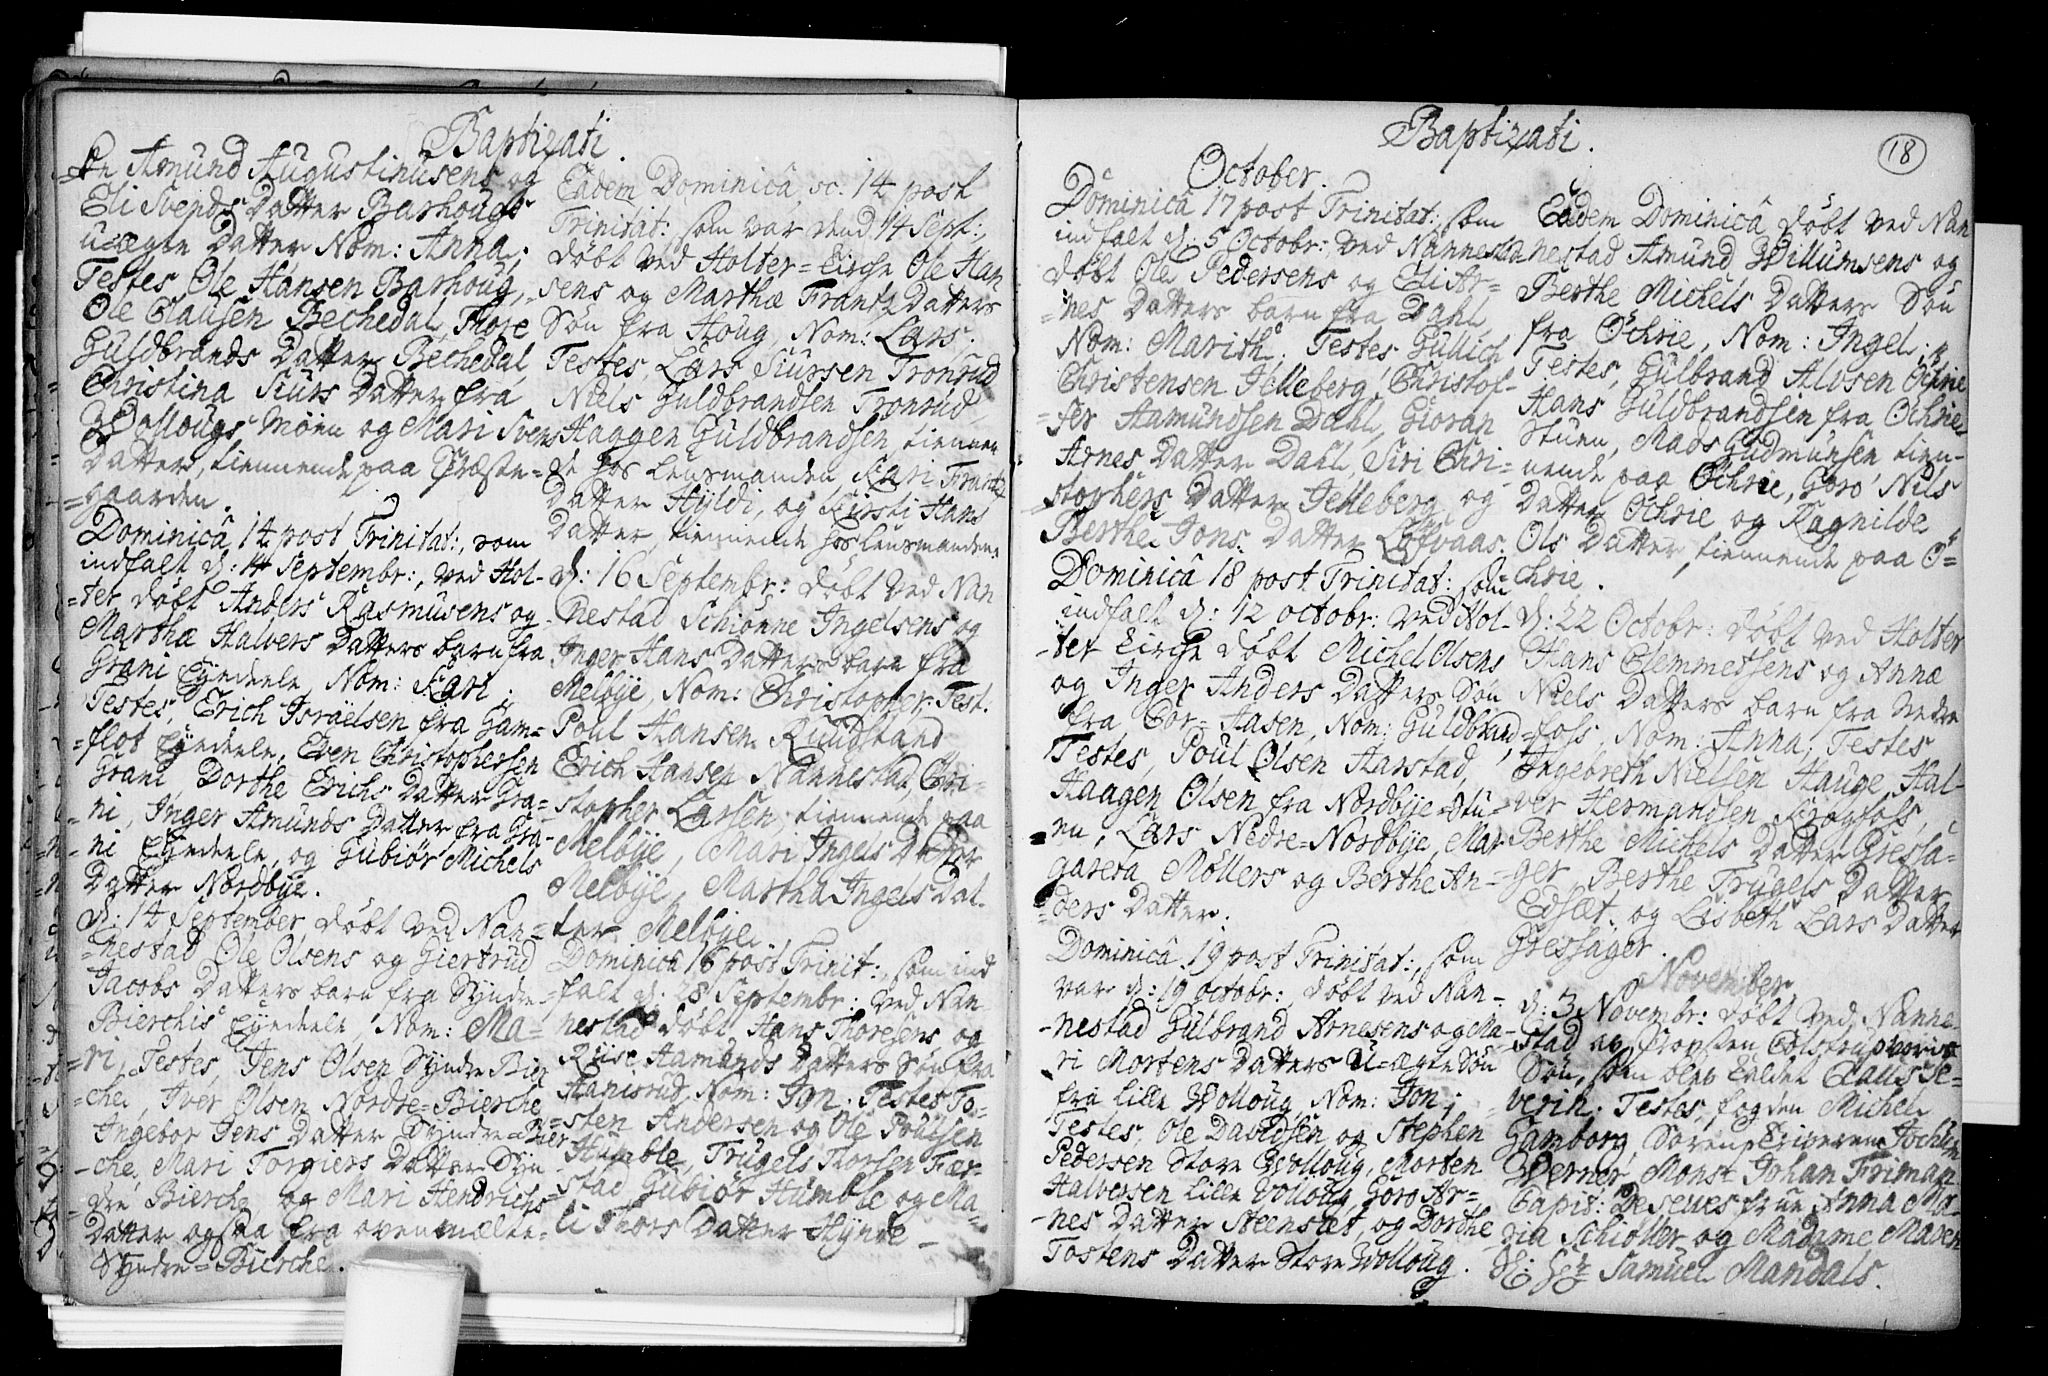 Baptizati.
Amund Augustinusens og
Eli Svends Datter Barhougs
uægte Datter Nom: Anna;
Testes Ole Hansen Barhoug,
Ole Clausen Bechedal, Thore
Guldbrands Datter Bechedal,
Christina Siurs Datter fra
Wollougs Moen og Mari Svens
Datter, tiennende paa Præste-
=gaarden.
Dominicâ 14 post Trinitat:, som
indfalt d: 14 Septembr:, ved Hol-
=ter døbt Anders Rasmusens og
Marthæ Halvers Datters barn fra
Grani Eyedeele, Nom: Kari;
Testes, Erich Israelsen fra Gam-
=flot Eyedeele, Even Christophersen
Grani, Dorthe Erichs Datter Gra-
=ni, Inger Amunds Datter fra Gra-
=ni Eyedeele, og Gubiør Michels
Datter Nordbye.
d: 14 September døbt ved Nan-
=nestad Ole Olsens og Giertrud
Jacobs Datters barn fra Syndre
Bierchis Eyedeele Nom: Ma-
=ri, Testes, Jens Olsen Syndre Bier
=che, Iver Olsen Nordre=Bierche
Ingebor Jens Datter Syndre=Bier
-che, Mari Torgiers Datter Syn
-dre Bierche, og Mari Hendrichs
Datter ogsaa fra ovenmælte
Syndre=Bierche.
Eadem Dominicâ, sc: 14 post
Trinitat: som var dend 14 Sept:,
døbt ved Holter=Kirche Ole Han
=sens og Marthæ Frantz Datters
Søn fra Houg, Nom: Lars.
Testes, Lars Siursen Tronrud
Niels Guldbrandsen Tronrud
Haagen Guldbrandsen, tiennen
=de hos Lensmanden, Kari Frantz
Datter Hyldi, og Kirsti Hans
Datter, tiennende hos Lensmanden
d: 16 Septembr: døbt ved Nan
=nestad Schiønne Ingelsens og
Inger Hans Datters barn fra
Melbye, Nom: Christopher; Test.
Poul Hansen Ruudstand
Erich Hansen Nannestad, Chri-
=stopher Larsen, tiennende paa
Melbye, Mari Ingels Datter
Melbye, Martha Ingels Dat-
ter Melbye.
Dominica 16 post Trinit:, som ind
=falt d: 28 Septembr: ved Nan-
=nestad døbt Hans Thoresens og
Riise Aamunds Datters Søn fra
Hanisrud, Nom: Jon. Testes To-
=sten Andersen og Ole Poulsen
Humble, Trugels Thorsen Fær-
=stad Gubiør Humble og Ma-
=li Thors Datter Hynde-
Baptizati.
18
October.
Dominicâ 17 post Trinitat: som
indfalt d: 5 Octobr: ved Nannestad
døbt Ole Pedersens og Eli Ar-
=nes Datters barn fra Dahl,
Nom: Marith. Testes, Gullich
Christensen Jelleberg, Christof-
=fer Aamundsen Dahl, Gioran
Arnes Datter Dahl, Siri Chri-
=stophers Datter Jelleberg og
Berthe Jons Datter Løfvaas.
Dominicâ 18 post Trinitat: som
indfalt d: 12 octobr: ved Hol-
-ter Kirche døbt Michel Olsens
og Inger Anders Datters Søn
fra Cor=Aasen, Nom: Guldbrand
Testes, Poul Olsen Harstad,
Haagen Olsen fra Nordbye Stu-
=en, Lars Nedre=Nordbye, Mar
gareta Møllers og Berthe An-
=ders Datter.
Dominicâ 19 post Trinitat:, som
var d: 19 octobr:, døbt ved Nan-
-nestad Gulbrand Arnesens og Ma-
ri Mortens Datters U=ægte Søn
fra Lille Wolloug, Nom: Jon;
Testes, Ole Davidsen og Stephen
Pedersen Store Wolloug, Morten
Halversen Lille Wolloug, Goro Ar-
-nes Datter Steensæt, og Dorthe
Tostens Datter Store Wolloug.
Eadem Dominicâ døbt ved Nan
nestad Amund Willumsens og
Berthe Michels Datters Søn
fra Ochrie, Nom: Ingel;
Testes, Gulbrand Alvsen Ochrie
Hans Guldbrandsen fra Ochrie
Stuen, Mads Gudmunsen tien-
nende paa Ochrie, Goro Nils
Datter Ochrie og Ragnilde
Ols Datter, tiennende paa O-
chrie.
d: 22 Octobr: døbt ved Holter
Hans Clemmetsens og Annæ
Niels Datters barn fra Nedre
=foss, Nom: Anna; Testes
Ingebreth Nielsen Hauge, Hal-
ver Hermandsen Krogfoss,
Berthe Michels Datter Gressa-
=ger, Berthe Trugels Datter
Edsæt. og Lisbeth Lars Datter
Gressager.
November
d: 3 Novembr: døbt ved Nanne-
=stad Colstrup
Søn, som blev kaldet Claus Se-
=verin. Testes, fogden Michel
Gamborg, Sorenskriveren Jochum
Werner, Monsr Johan Friman
Capit: Deseues frue Anna Ma-
ria Schiøller og Madame Maren
Sl: Hr Samuel Mandals.